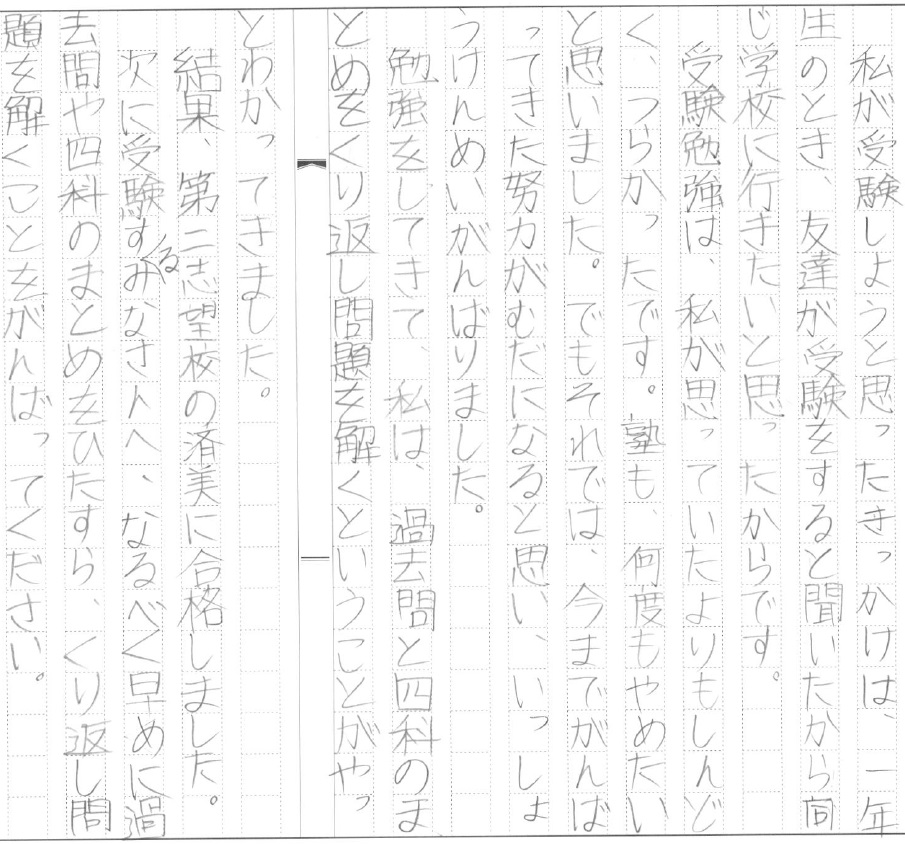 私が受験しようと思ったきっかけは、一年
生のとき、友達が受験をすると聞いたから同
じ学校に行きたいと思ったからです。
受験勉強は、私が思っていたよりもしんど
く、つらかったです。塾も、何度もやめたい
と思いました。でもそれでは、今までがんば
ってきた努力がむだになると思い、いっしょ
うけんめいがんばりました。
勉強をしてきて、私は、過去問と四科のま
とめをくり返し問題を解くということがやっ
とわかってきました。
結果、第二志望校の済美に合格しました。
次に受験するみなさんへ、なるべく早めに過
去問や四科のまとめをひたすら、くり返し問
題を解くことをがんばってください。